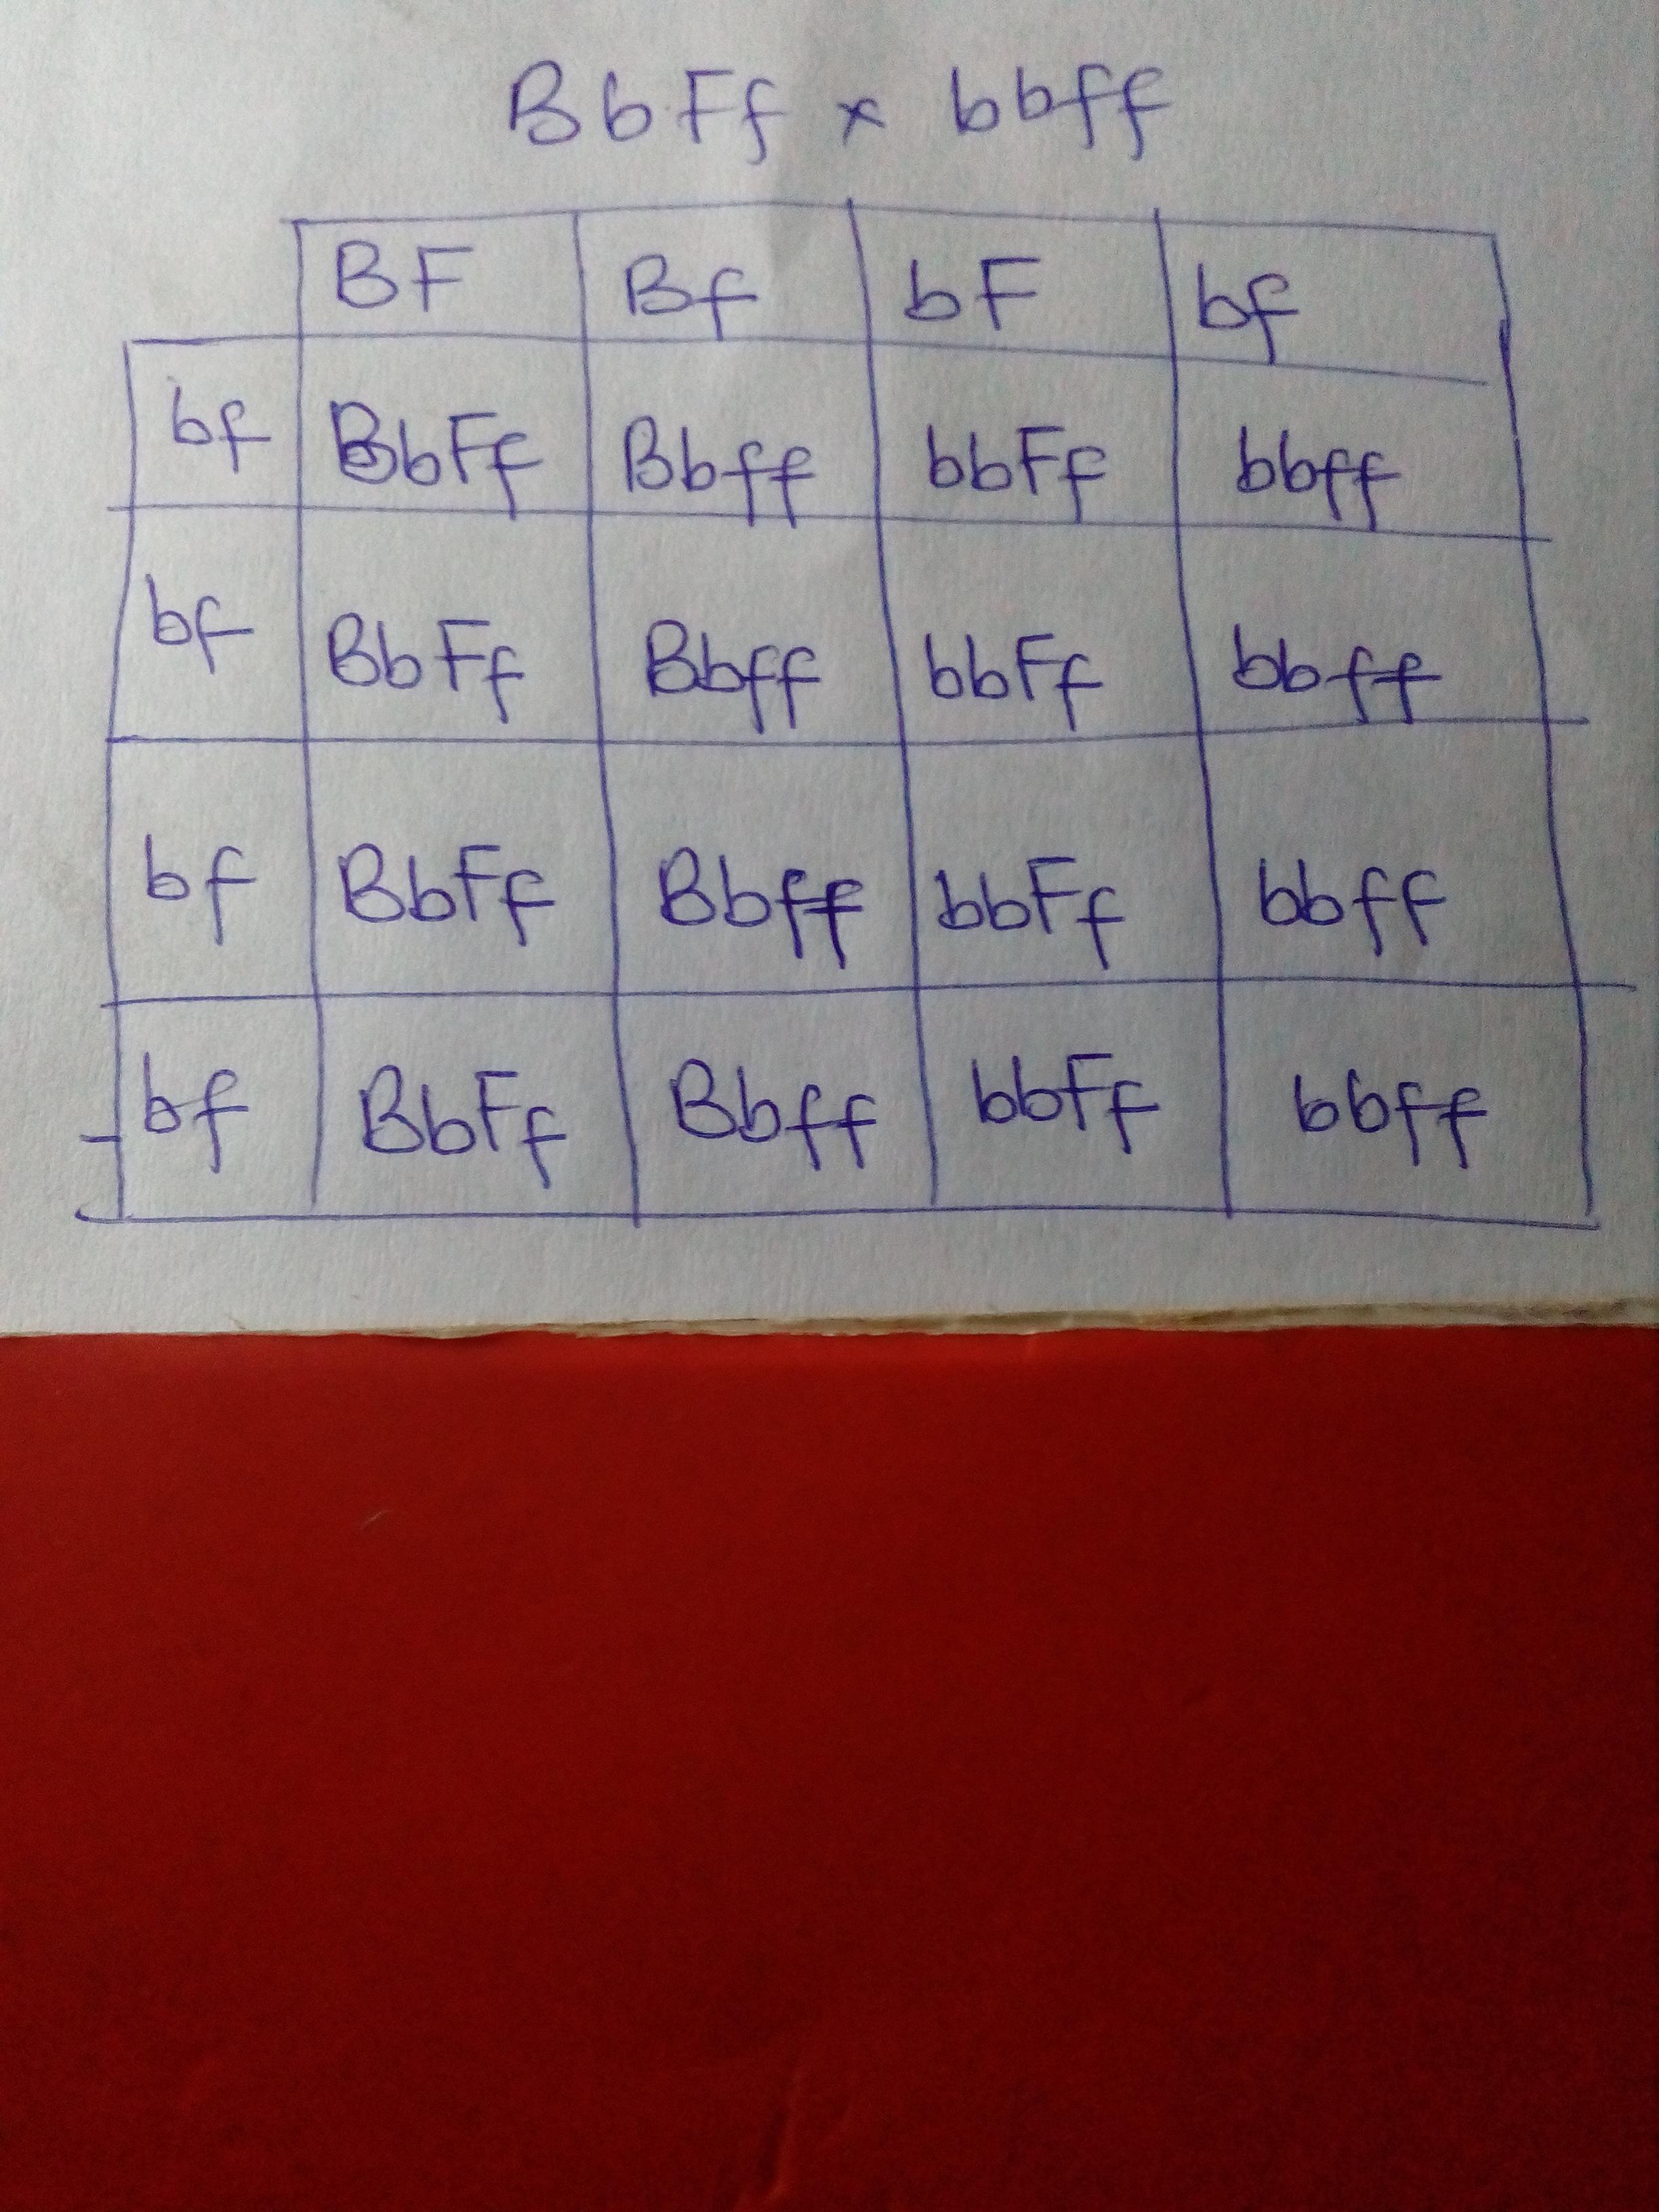 BbFf x bbff
BF Bf bF bf
bf BbFf Bbff bbFf bbff
bf BbFf Bbff bbFf bbff
bf BbFf Bbff bbFf bbff
bf BbFf Bbff bbFf bbff